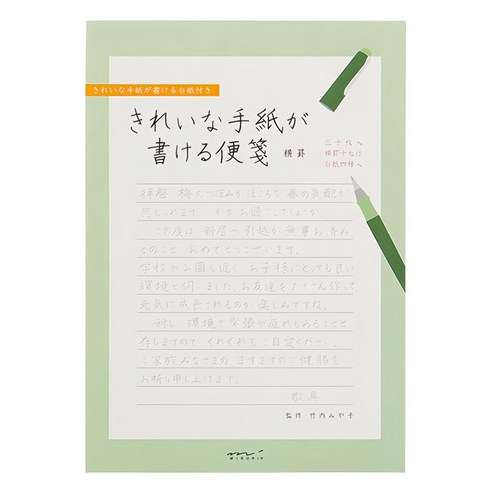 きれいな手紙が書ける台紙付き
きれいな手紙が
書ける便箋 横罫
三十枚入
横罫十七行
台紙四種入
拝啓 梅のつぼみもほころび 春の気配が
感じられます。いかがお過ごしでしょうか。
この度は 新居へ引越が無事お済み
とのこと おめでとうございます。
学校や公園も近く お子様にとっても良い
環境と伺いました。お友達をたくさん作って
元気に成長されるのが楽しみですね。
新しい環境で緊張や疲れもあることと
存じますので くれぐれもご自愛ください。
ご家族みなさまの ますますのご健勝を
お祈り申し上げます。
敬具
監修 竹内みや子
MIDORI